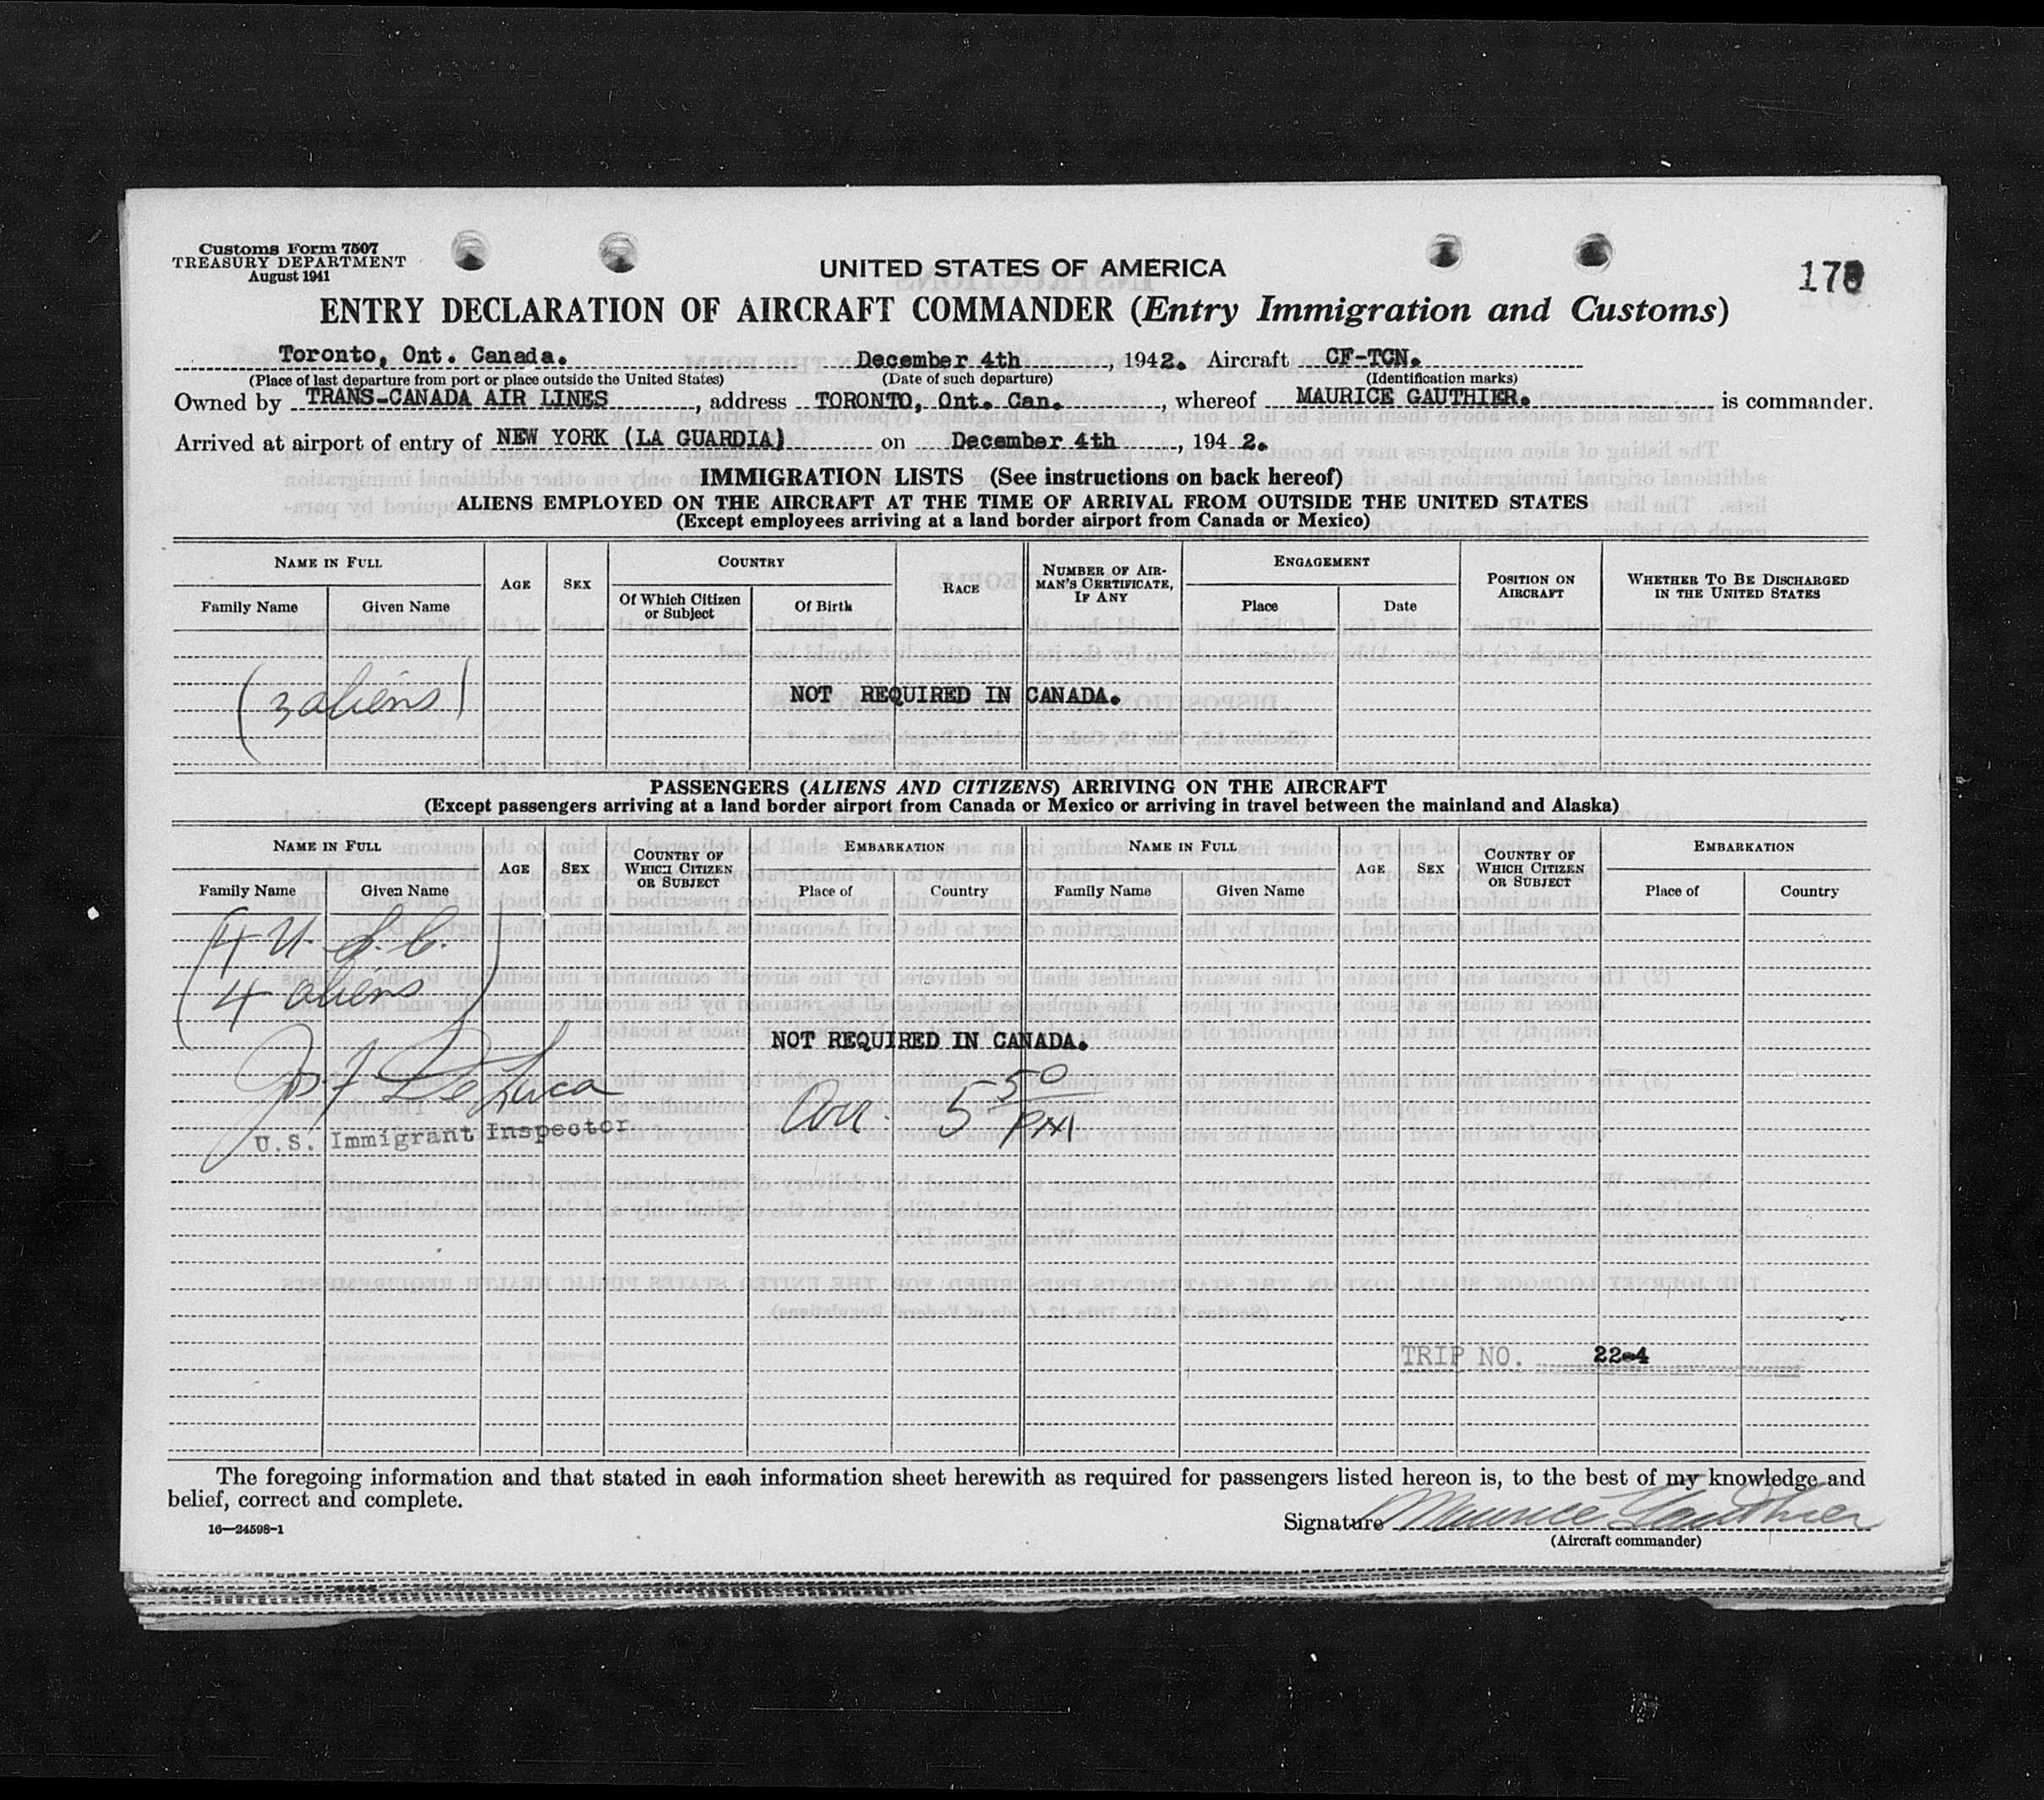 Customs Form 7507
TREASURY DEPARTMENT
August 1941
UNITED STATES OF AMERICA
ENTRY DECLARATION OF AIRCRAFT COMMANDER (Entry Immigration and Customs)
Toronto, Ont. Canada. December 4th, 1942. Aircraft CF-TCN.
(Place of last departure from port or place outside the United States) (Date of such departure) (Identification marks)
Owned by TRANS-CANADA AIR LINES, address TORONTO, Ont. Can., whereof MAURICE GAUTHIER. is commander.
Arrived at airport of entry of NEW YORK (LA GUARDIA) on December 4th, 1942.
IMMIGRATION LISTS (See instructions on back hereof)
ALIENS EMPLOYED ON THE AIRCRAFT AT THE TIME OF ARRIVAL FROM OUTSIDE THE UNITED STATES
(Except employees arriving at a land border airport from Canada or Mexico)
NAME IN FULL AGE SEX COUNTRY RACE NUMBER OF AIRMAN'S CERTIFICATE, IF ANY ENGAGEMENT POSITION ON AIRCRAFT WHETHER TO BE DISCHARGED IN THE UNITED STATES
Family Name Given Name Of Which Citizen or Subject Of Birth Place Date
(3 aliens)
NOT REQUIRED IN CANADA.
PASSENGERS (ALIENS AND CITIZENS) ARRIVING ON THE AIRCRAFT
(Except passengers arriving at a land border airport from Canada or Mexico or arriving in travel between the mainland and Alaska)
NAME IN FULL AGE SEX COUNTRY OF WHICH CITIZEN OR SUBJECT EMBARKATION NAME IN FULL AGE SEX COUNTRY OF WHICH CITIZEN OR SUBJECT EMBARKATION
Family Name Given Name Place of Country Family Name Given Name Place of Country
(4 U.S.C.
4 aliens)
NOT REQUIRED IN CANADA.
Jos. F. DeLuca
Arr. 5 50 PM
U.S. Immigrant Inspector
TRIP NO. 22-4
The foregoing information and that stated in each information sheet herewith as required for passengers listed hereon is, to the best of my knowledge and
belief, correct and complete.
16—24598-1
Signature Maurice Gauthier
(Aircraft commander)